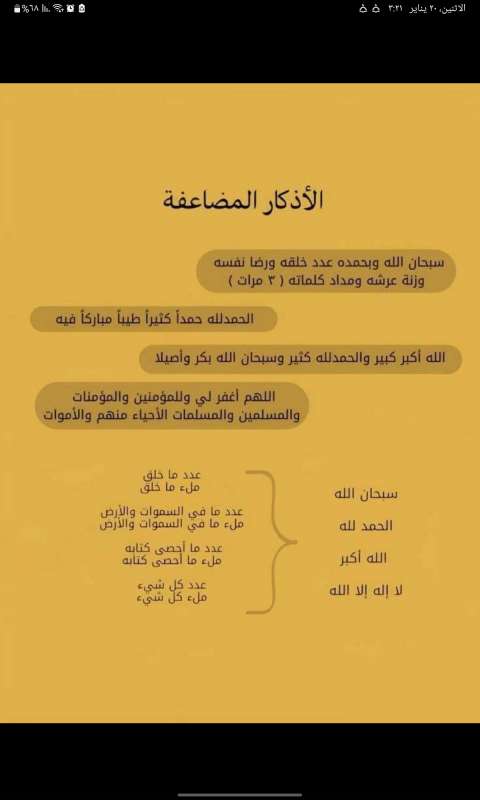 الاثنين، ٢٠ يناير ٣:٢١
٪٦٨
الأذكار المضاعفة
سبحان الله وبحمده عدد خلقه ورضا نفسه
وزنة عرشه ومداد كلماته ( ٣ مرات )
الحمدلله حمداً كثيراً طيباً مباركاً فيه
الله أكبر كبير والحمدلله كثير وسبحان الله بكر وأصيلا
اللهم أغفر لي وللمؤمنين والمؤمنات
والمسلمين والمسلمات الأحياء منهم والأموات
سبحان الله
الحمد لله
الله أكبر
لا إله إلا الله
عدد ما خلق
ملء ما خلق
عدد ما في السموات والأرض
ملء ما في السموات والأرض
عدد ما أحصى كتابه
ملء ما أحصى كتابه
عدد كل شيء
ملء كل شيء